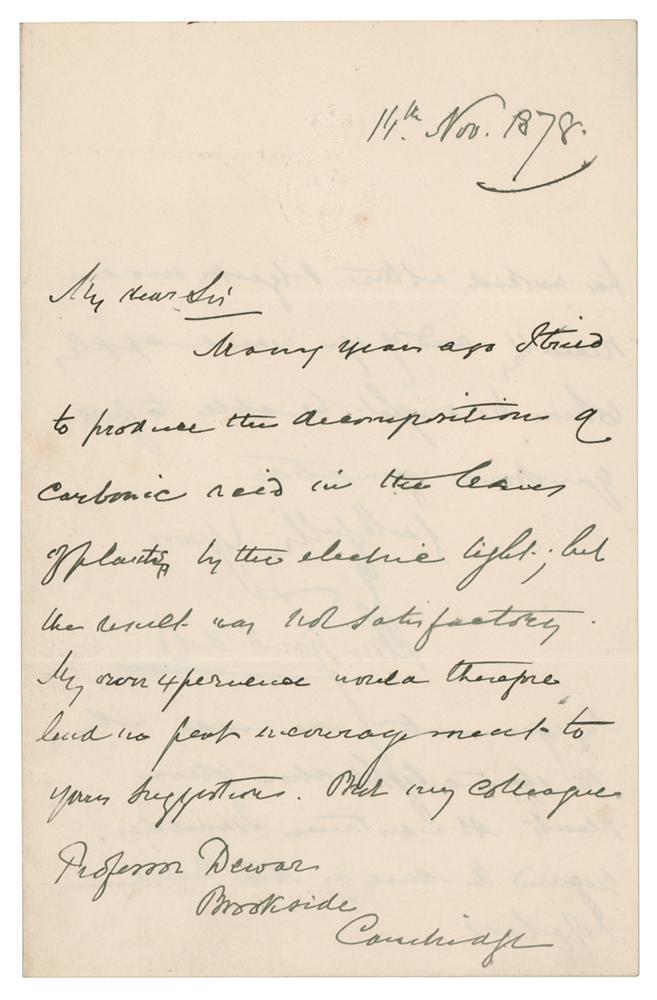 14th. Nov. 1878.
My dear Sir
Many years ago I tried
to produce the decomposition of
carbonic acid in the leaves
of plants, by the electric light; but
the result was not satisfactory.
My own experience would therefore
lend no great encouragement to
your suggestions. But my colleague
Professor Dewar
Brookside
Cambridge